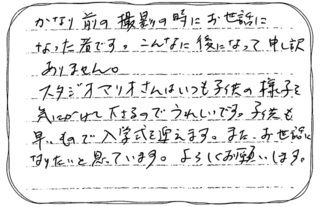 かなり前の撮影の時にお世話に
なった者です。こんなに後になって申し訳
ありません。
スタジオマリオさんはいつも子供の様子を
気にかけて下さるのでうれしいです。子供も
早いもので入学式を迎えます。また、お世話に
なりたいと思っています。よろしくお願いします。